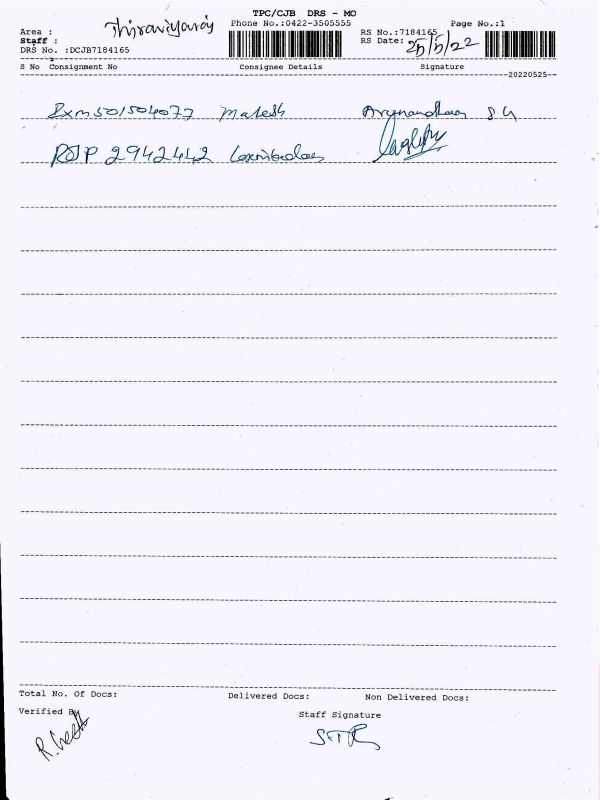 TPC/CJB DRS - MO
Area : Thiraviyaraj Phone No.:0422-3505555 Page No.:1
Staff : RS No.:7184165
DRS No. :DCJB7184165 RS Date: 25/5/22
S No Consignment No Consignee Details Signature
20220525
501504077 Mahesh
RJP 2942442
Total No. Of Docs: Delivered Docs: Non Delivered Docs:
Verified By Staff Signature